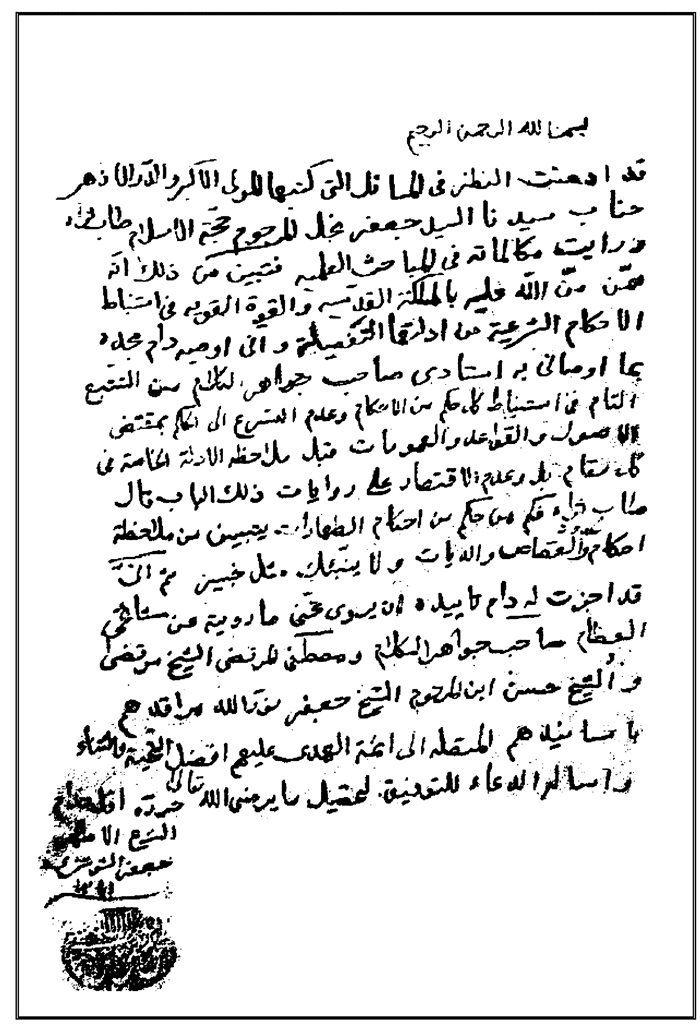 بسم الله الرحمن الرحيم
قد امعنت النظر في المسائل التي كتبها المولى الاكبر والازهر
جناب سيدنا السيد جعفر نجل المرحوم حجة الاسلام طاب ثراه
ورايت مكالماته في المباحث العلمية فتبين من ذلك انه
ممن منّ الله عليه بالملكة القدسيه والقوة القويه في استنباط
الاحكام الشرعية من ادلتها التفصيلية واني اوصيه دام مجده
بما اوصاني به استادي صاحب جواهر الكلام من التتبع
التام في استنباط كل حكم من الاحكام وعدم التسرع الى الحكم بمقتضى
الاصول والقواعد والعمومات قبل ملاحظة الادلة الخاصة في
كل مقام بل وعدم الاقتصار على روايات ذلك الباب قال
طاب ثراه فكم من حكم من احكام الطهارات يتبين من ملاحظة
احكام القصاص والديات ولا ينبئك مثل خبير ثم اني
قد اجزت له دام تاييده ان يروى عني ما رويته عن مشائخي
العظام صاحب جواهر الكلام ومصطفى المرتضى الشيخ مرتضى
والشيخ حسن ابن المرحوم الشيخ جعفر نور الله مراقدهم
باسانيدهم المتصله الى ائمة الهدى عليهم افضل التحية والثناء
واساله الدعاء للتوفيق لتحصيل ما يرضى الله تعالى
حرره اقل خدام
الشرع
جعفر التوشتري